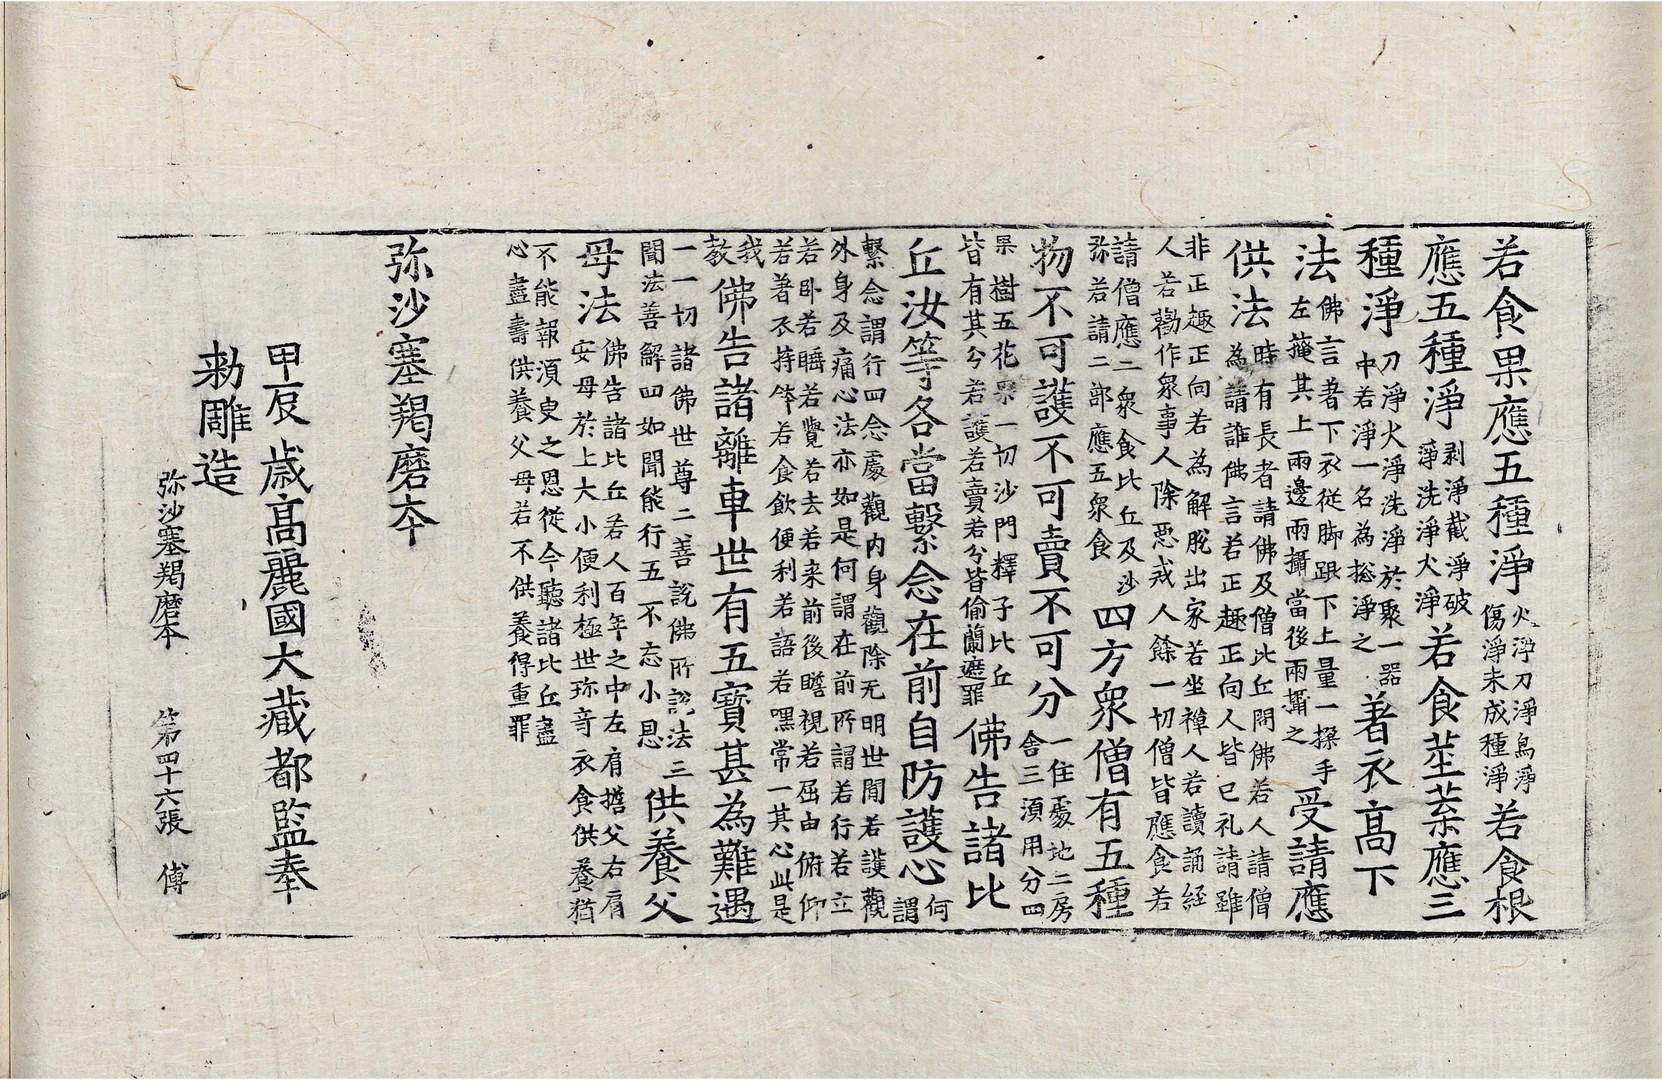 若食果應五種淨火淨刀淨鳥淨傷淨未成種淨若食根
應五種淨剥淨截淨破淨洗淨火淨若食莖菜應三
種淨刀淨火淨洗淨於聚一器中若淨一名為揔淨之著衣高下
法佛言著下衣從脚踝下上量一搩手左掩其上兩邊兩攝當後兩攝之受請應
供法時有長者請佛及僧比丘問佛若人請僧為請誰佛言若正趣正向人皆已礼請雖
非正趣正向若為解脫出家若坐禪人若讀誦經人若勸作衆事人除惡戒人餘一切僧皆應食若
請僧應二衆食比丘及沙弥若請二部應五衆食四方衆僧有五種
物不可護不可賣不可分一住處地二房舍三須用分四
果樹五花果一切沙門釋子比丘皆有其分若護若賣若分皆偷蘭遮罪佛告諸比
丘汝等各當繫念在前自防護心何謂
繫念謂行四念處觀内身觀除无明世間若護觀外身及痛心法亦如是何謂在前所謂若行若立
若卧若睡若覺若去若来前後瞻視若屈申俯仰若著衣持鉢若食飲便利若語若嘿常一其心此是
我教佛告諸離車世有五寶甚為難遇
一一切諸佛世尊二善說佛所說法三聞法善解四如聞能行五不忘小恩供養父
母法佛告諸比丘若人百年之中左肩擔父右肩安母於上大小便利極世珎竒衣食供養猶
不能報須臾之恩從今聽諸比丘盡心盡壽供養父母若不供養得重罪
弥沙塞羯磨本
甲辰歲高麗國大藏都監奉
勑雕造
弥沙塞羯磨本 第四十六張 傅